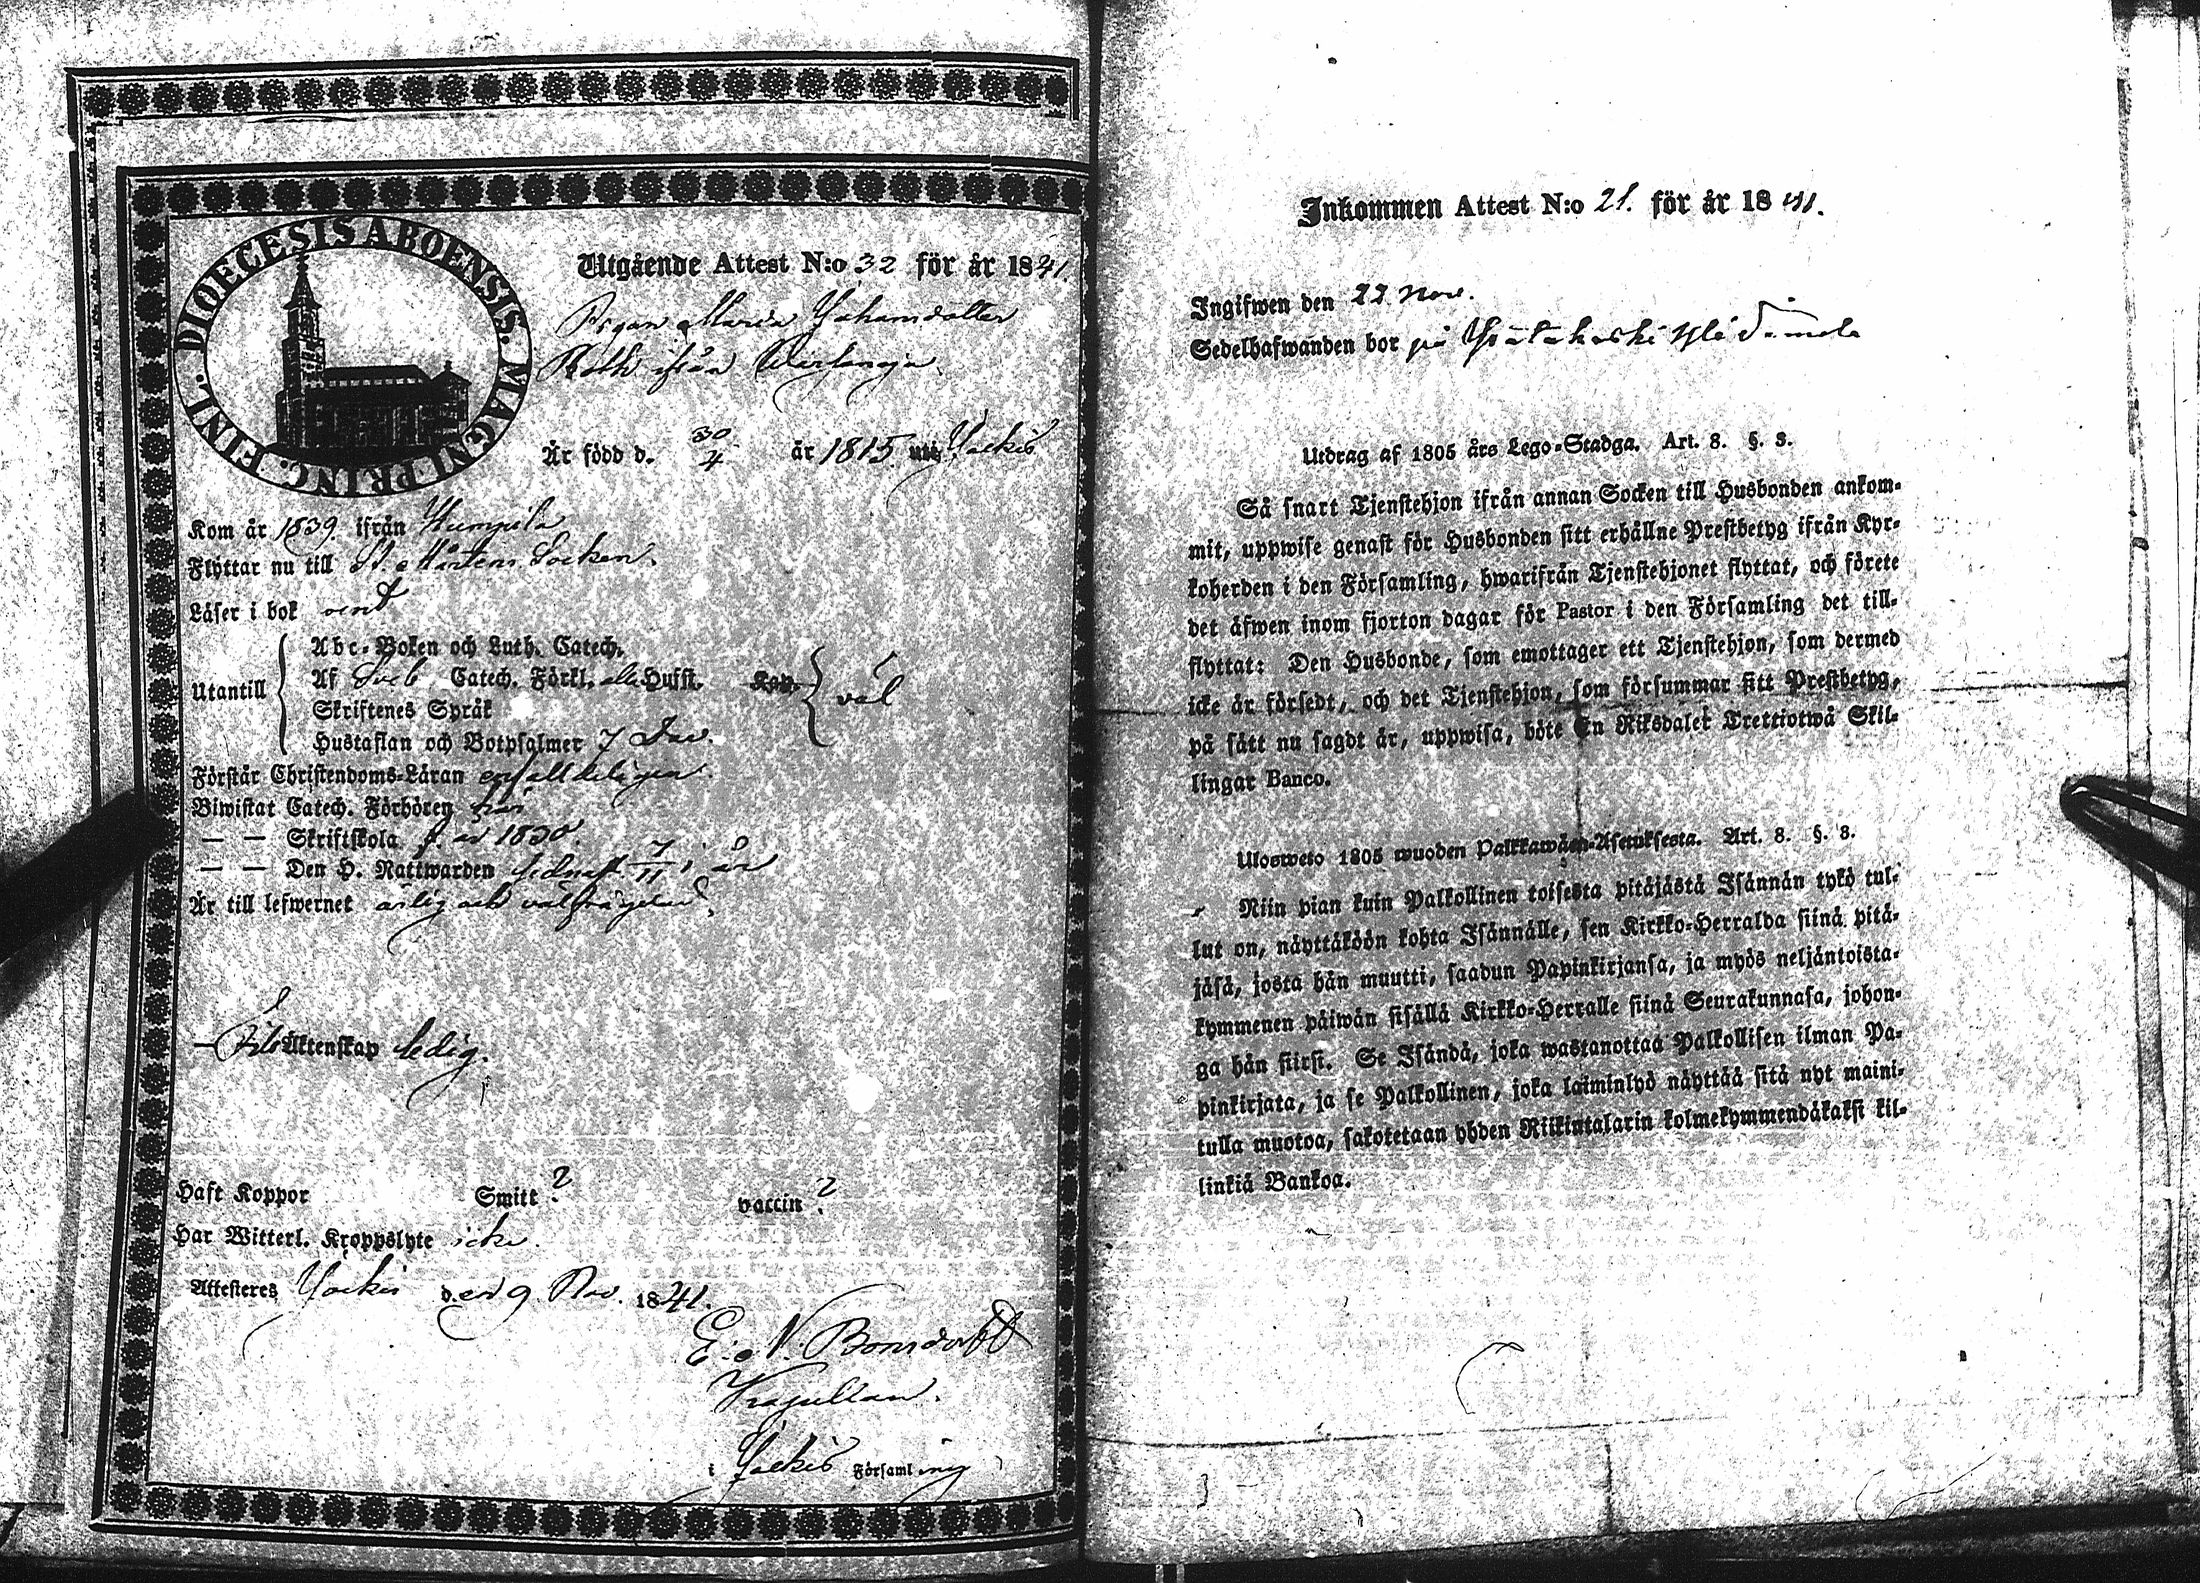 DIOECESIS ABOENSIS. MAGNI PRINC. FINL.
Utgående Attest N:o 32 för år 1841
Pigan Maria Johansdotter
Roth ifrån
Är född d. 30/4 år 1815 uti Jockis
Kom år 1839 ifrån Humpila
Flyttar nu till St. Mårtens Socken.
Läser i bok
Utantill
Abc-Boken och Luth. Catech.
Af Sveb Catech. Förkl. alla Husst. Kap.
Skriftenes Språk
Hustaflan och Botpsalmer 7 Dav.
väl
Förstår Christendoms-Läran enfalldeligen.
Biwistat Catech. Förhören här
— — Skriftskola f. år 1830.
— — Den H. Nattwarden sednast 7/11 i år
Är till lefwernet ärlig och välfrägdad.
— Till Äktenskap ledig.
Haft Koppor Smitt ? vaccin ?
Har Witterl. Kroppslyte icke.
Attesteres Jockis d. en 9 Nov. 1841.
E. N. Bonsdorff
Kapellan.
i Jockis Församling
Inkommen Attest N:o 21. för år 1841.
Ingifwen den 22 Nov.
Sedelhafwanden bor på
Utdrag af 1805 års Lego-Stadga. Art. 8. §. 3.
Så snart Tjenstehjon ifrån annan Socken till Husbonden ankom-
mit, uppwise genast för Husbonden sitt erhållne Prestbetyg ifrån Kyr-
koherden i den Församling, hwarifrån Tjenstehjonet flyttat, och förete
det äfwen inom fjorton dagar för Pastor i den Församling det till-
flyttat: Den Husbonde, som emottager ett Tjenstehjon, som dermed
icke är försedt, och det Tjenstehjon, som försummar sitt Prestbetyg,
på sätt nu sagdt är, uppwisa, böte En Riksdaler Trettiotwå Skil-
lingar Banco.
Ulosweto 1805 wuoden Palkkawäen-Asetuksesta. Art. 8. §. 3.
Niin pian kuin Palkollinen toisesta pitäjästä Isännän tykö tul-
lut on, näyttäköön kohta Isännälle, sen Kirkko-Herralda siinä pitä-
jäsä, josta hän muutti, saadun Papinkirjansa, ja myös neljäntoista-
kymmenen päiwän sisällä Kirkko-Herralle siinä Seurakunnasa, johon-
ga hän siirst. Se Isändä, joka wastanottaa Palkollisen ilman Pa-
pinkirjata, ja se Palkollinen, joka laiminlyö näyttää sitä nyt maini-
tulla muotoa, sakotetaan yhden Riikintalarin kolmekymmendäkaksi kil-
linkiä Bankoa.